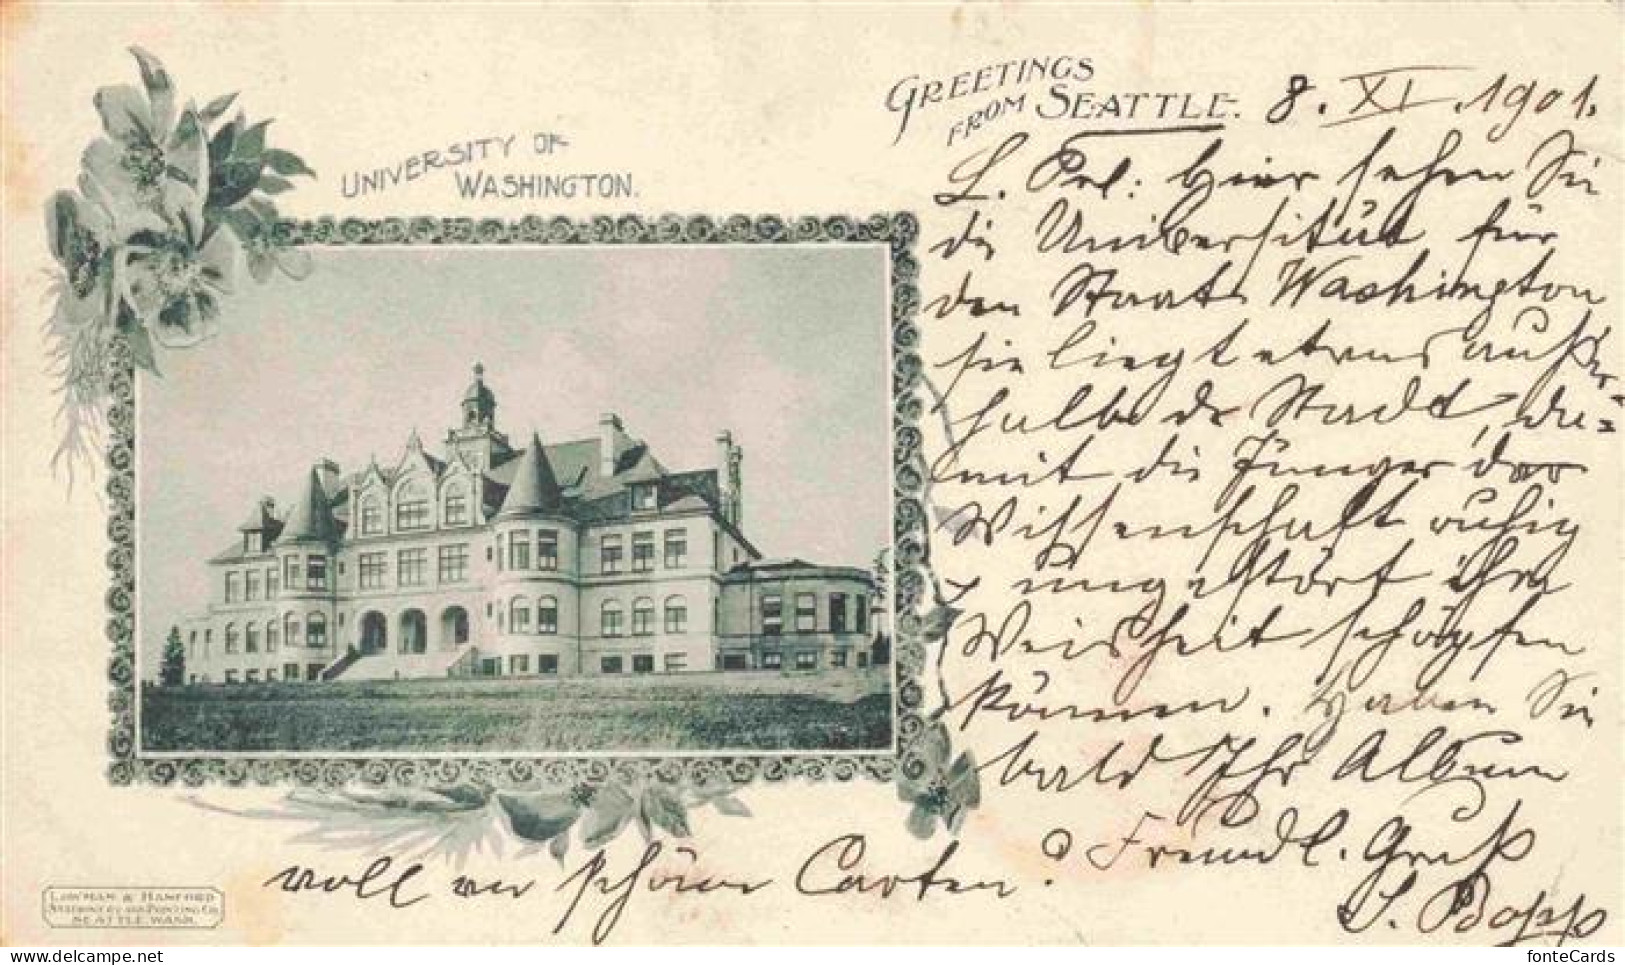 GREETINGS
FROM SEATTLE. 8. XI. 1901.
UNIVERSITY OF
WASHINGTON.
L. Hier sehen Sie
die Universität für
den Staate Washington
sie liegt etwas außer-
halb der Stadt, da=
mit die Jünger der
Wissenschaft ruhig
& ungestört ihre
Weisheit schöpfen
können. Haben Sie
bald Ihr Album
voll von schönen Carten? Freundl. Gruß
S. Bopp
LOWMAN & HANFORD
STATIONERY AND PRINTING CO.
SEATTLE, WASH.
delcampe.net
fonteCards